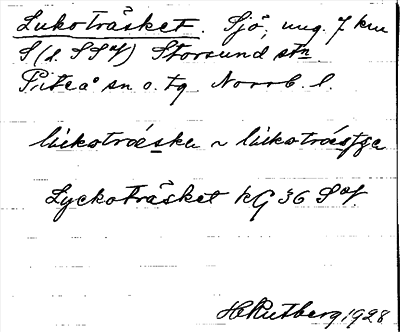 Lukoträsket. Sjö, ung. 7 km
S (l. SSV) Storsund stn
Piteå sn o. tg Norrb. l.
lúkotrǽska ~ lúkotrǽstga
Lyckoträsket kG 36 SV.
H Rutberg 1928